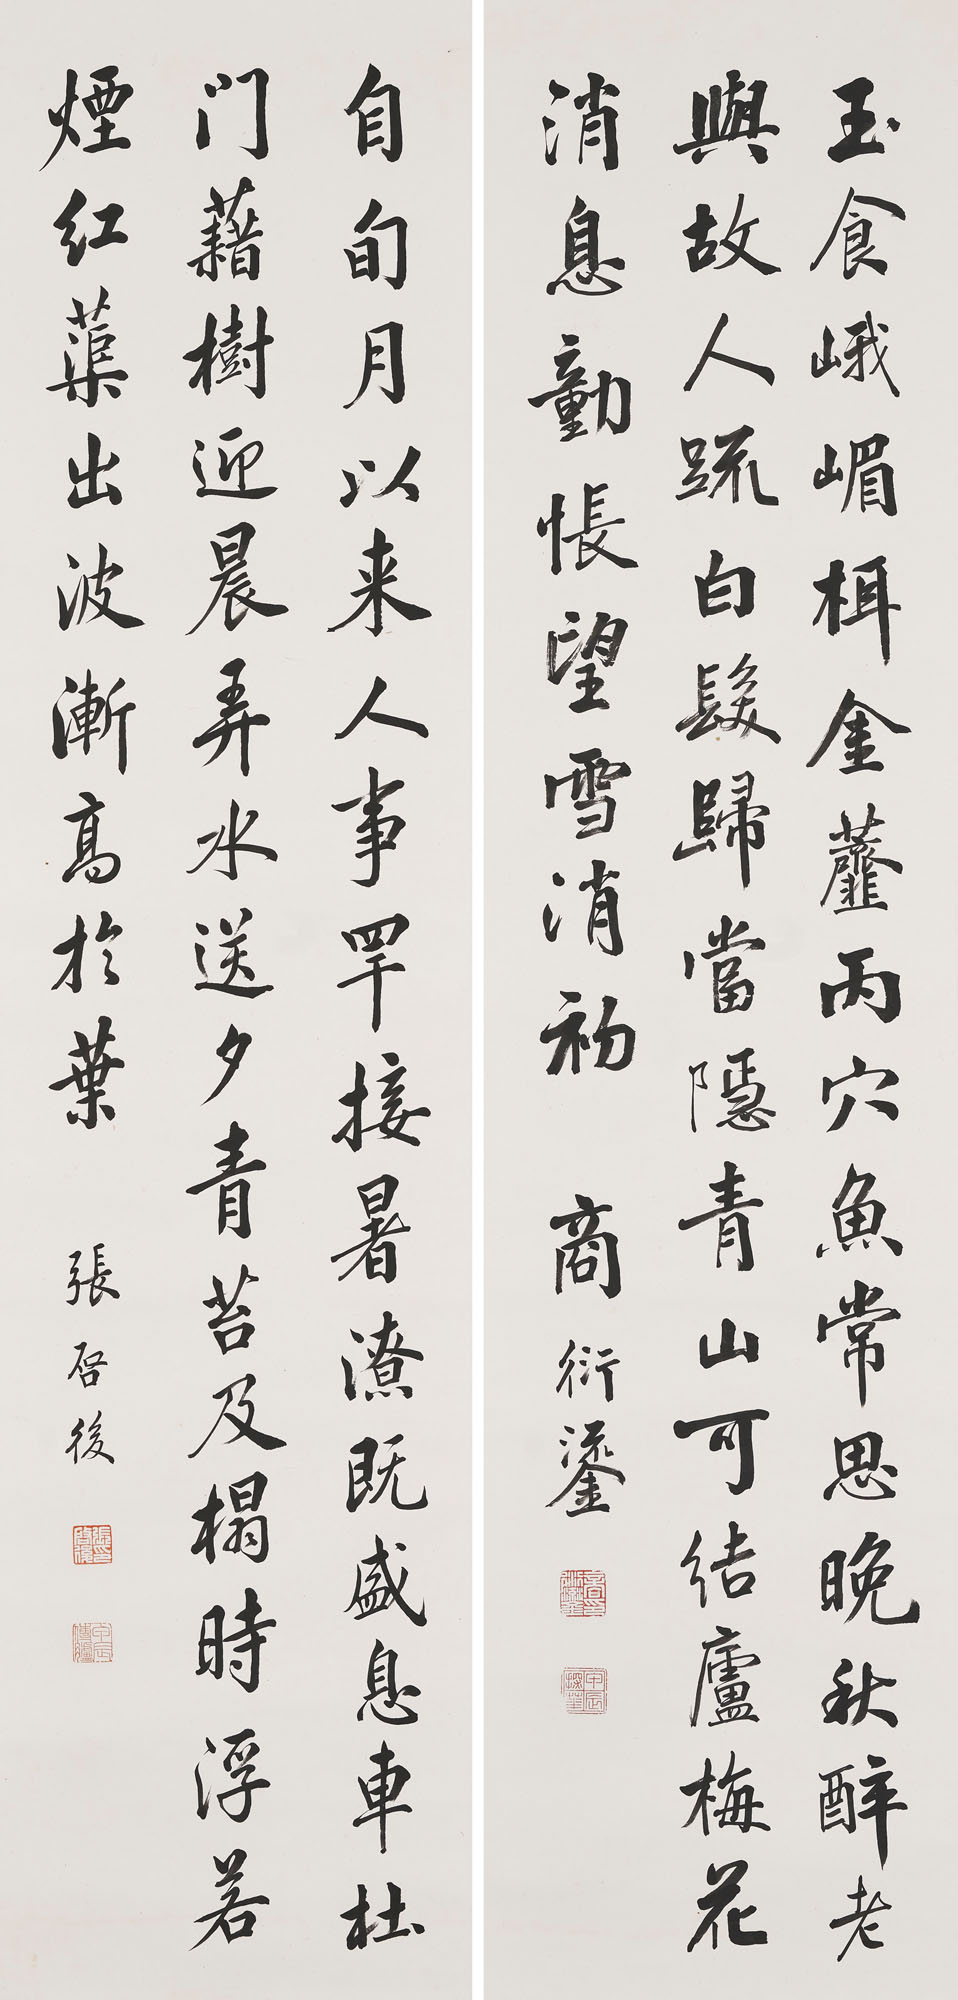 玉食峨嵋栮金虀丙穴魚常思晚秋醉老
與故人疏白髮歸當隱青山可結廬梅花
消息動悵望雪消初
商衍鎏
自旬月以来人事罕接暑潦既盛息車杜
门藉樹迎晨弄水送夕青苔及榻時浮若
煙红蕖出波漸高於葉
張啓後